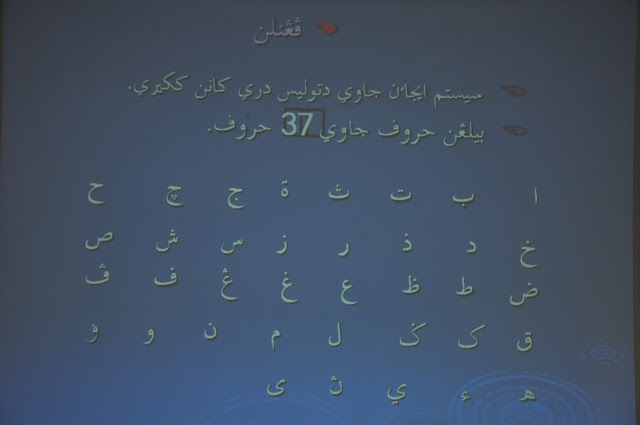 ڤڠنلن
سيستم ايجاءن جاوي دتوليس دري كانن ككيري.
بيلڠن حروف جاوي 37 حروف.
ا ب ت ث ة ج چ ح
خ د ذ ر ز س ش ص
ض ط ظ ع غ ڠ ف ڤ
ق ک ݢ ل م ن و ۏ
ه ء ي ڽ ى